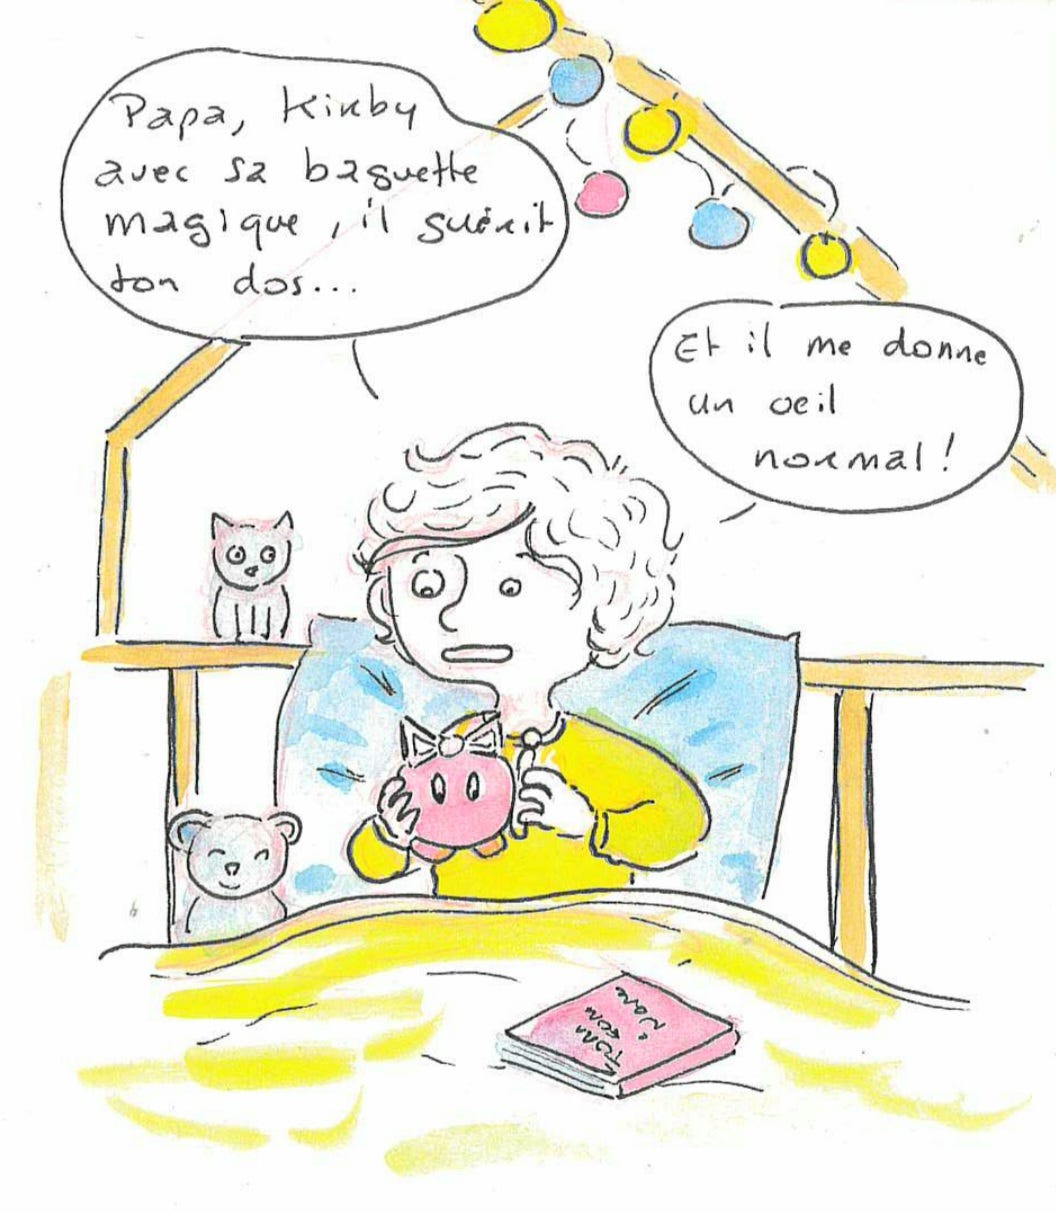 Papa, Kirby
avec sa baguette
magique, il guérit
ton dos...
Et il me donne
un oeil
normal !
TOM